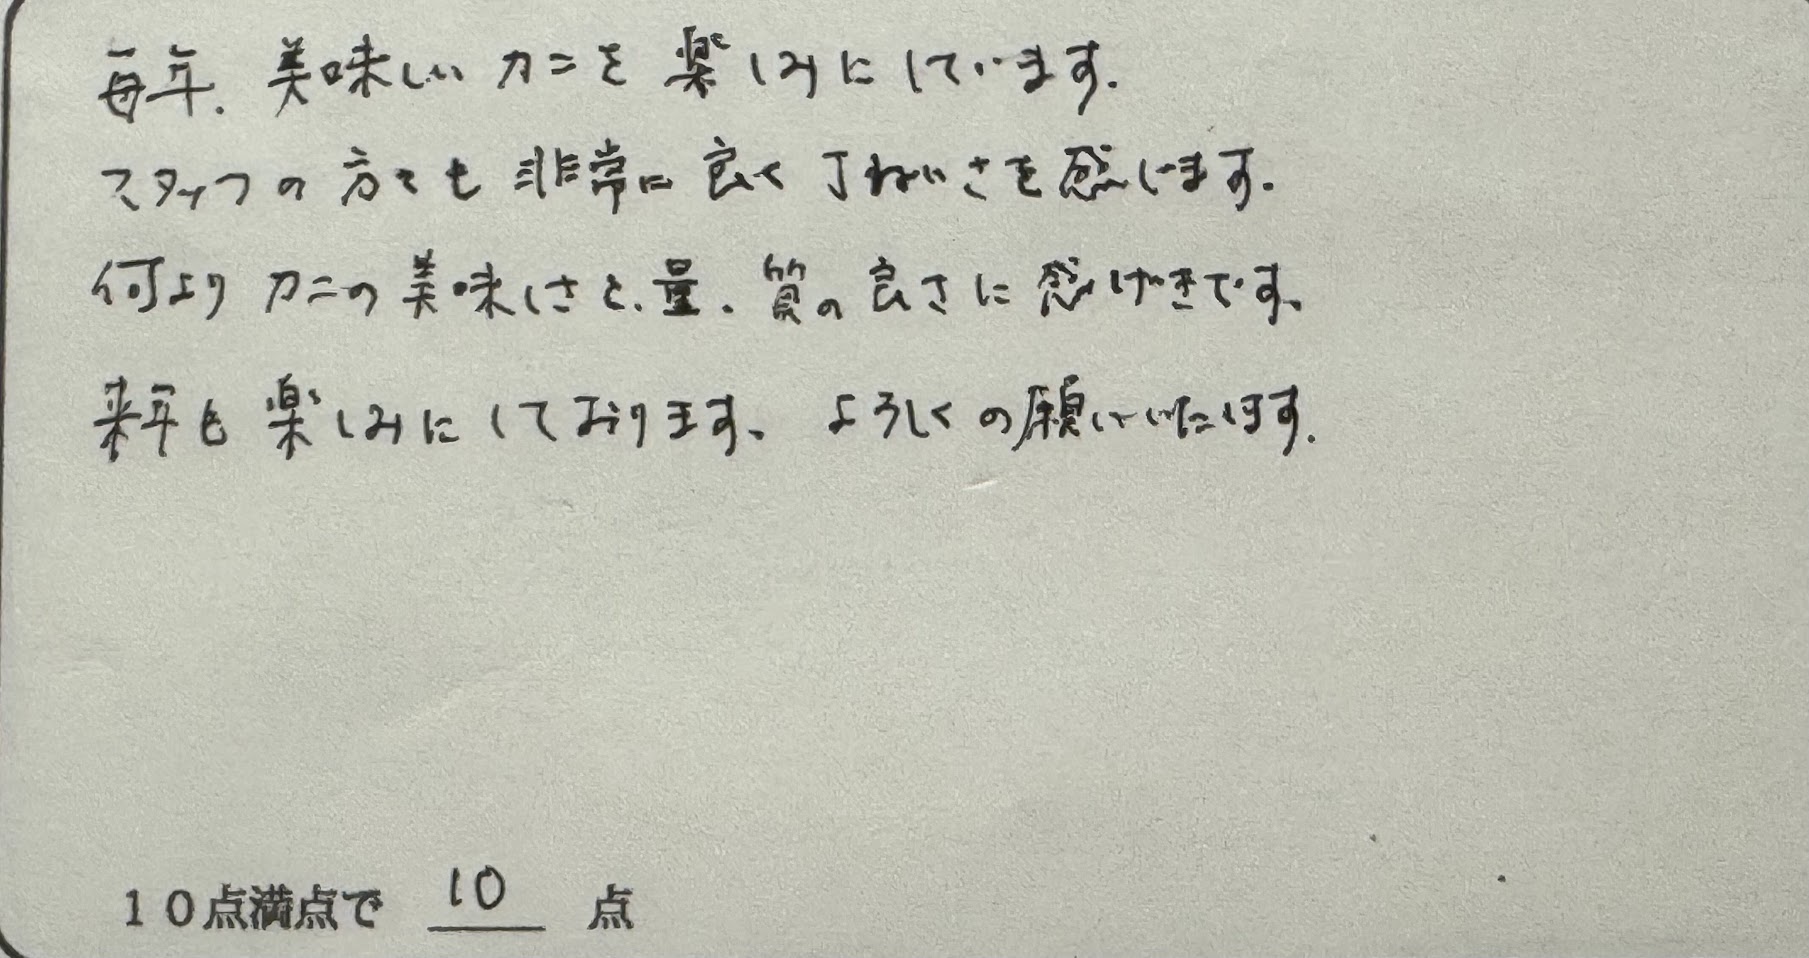 毎年、美味しいカニを楽しみにしています。
スタッフの方々も非常に良く丁ねいさを感じます。
何よりカニの美味しさと、量、質の良さに感げきです。
来年も楽しみにしております。よろしくお願いいたします。
10点満点で 10 点